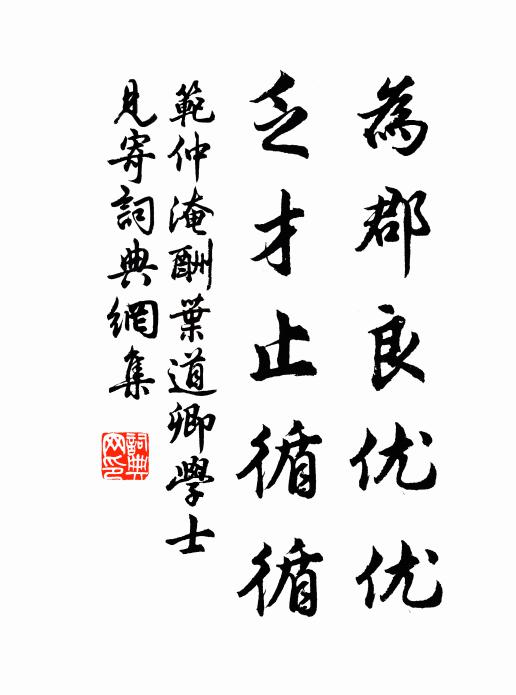 為郡良优优
乏才止循循
範仲淹酬葉道卿學士
見寄詞典網集
詞典
网印